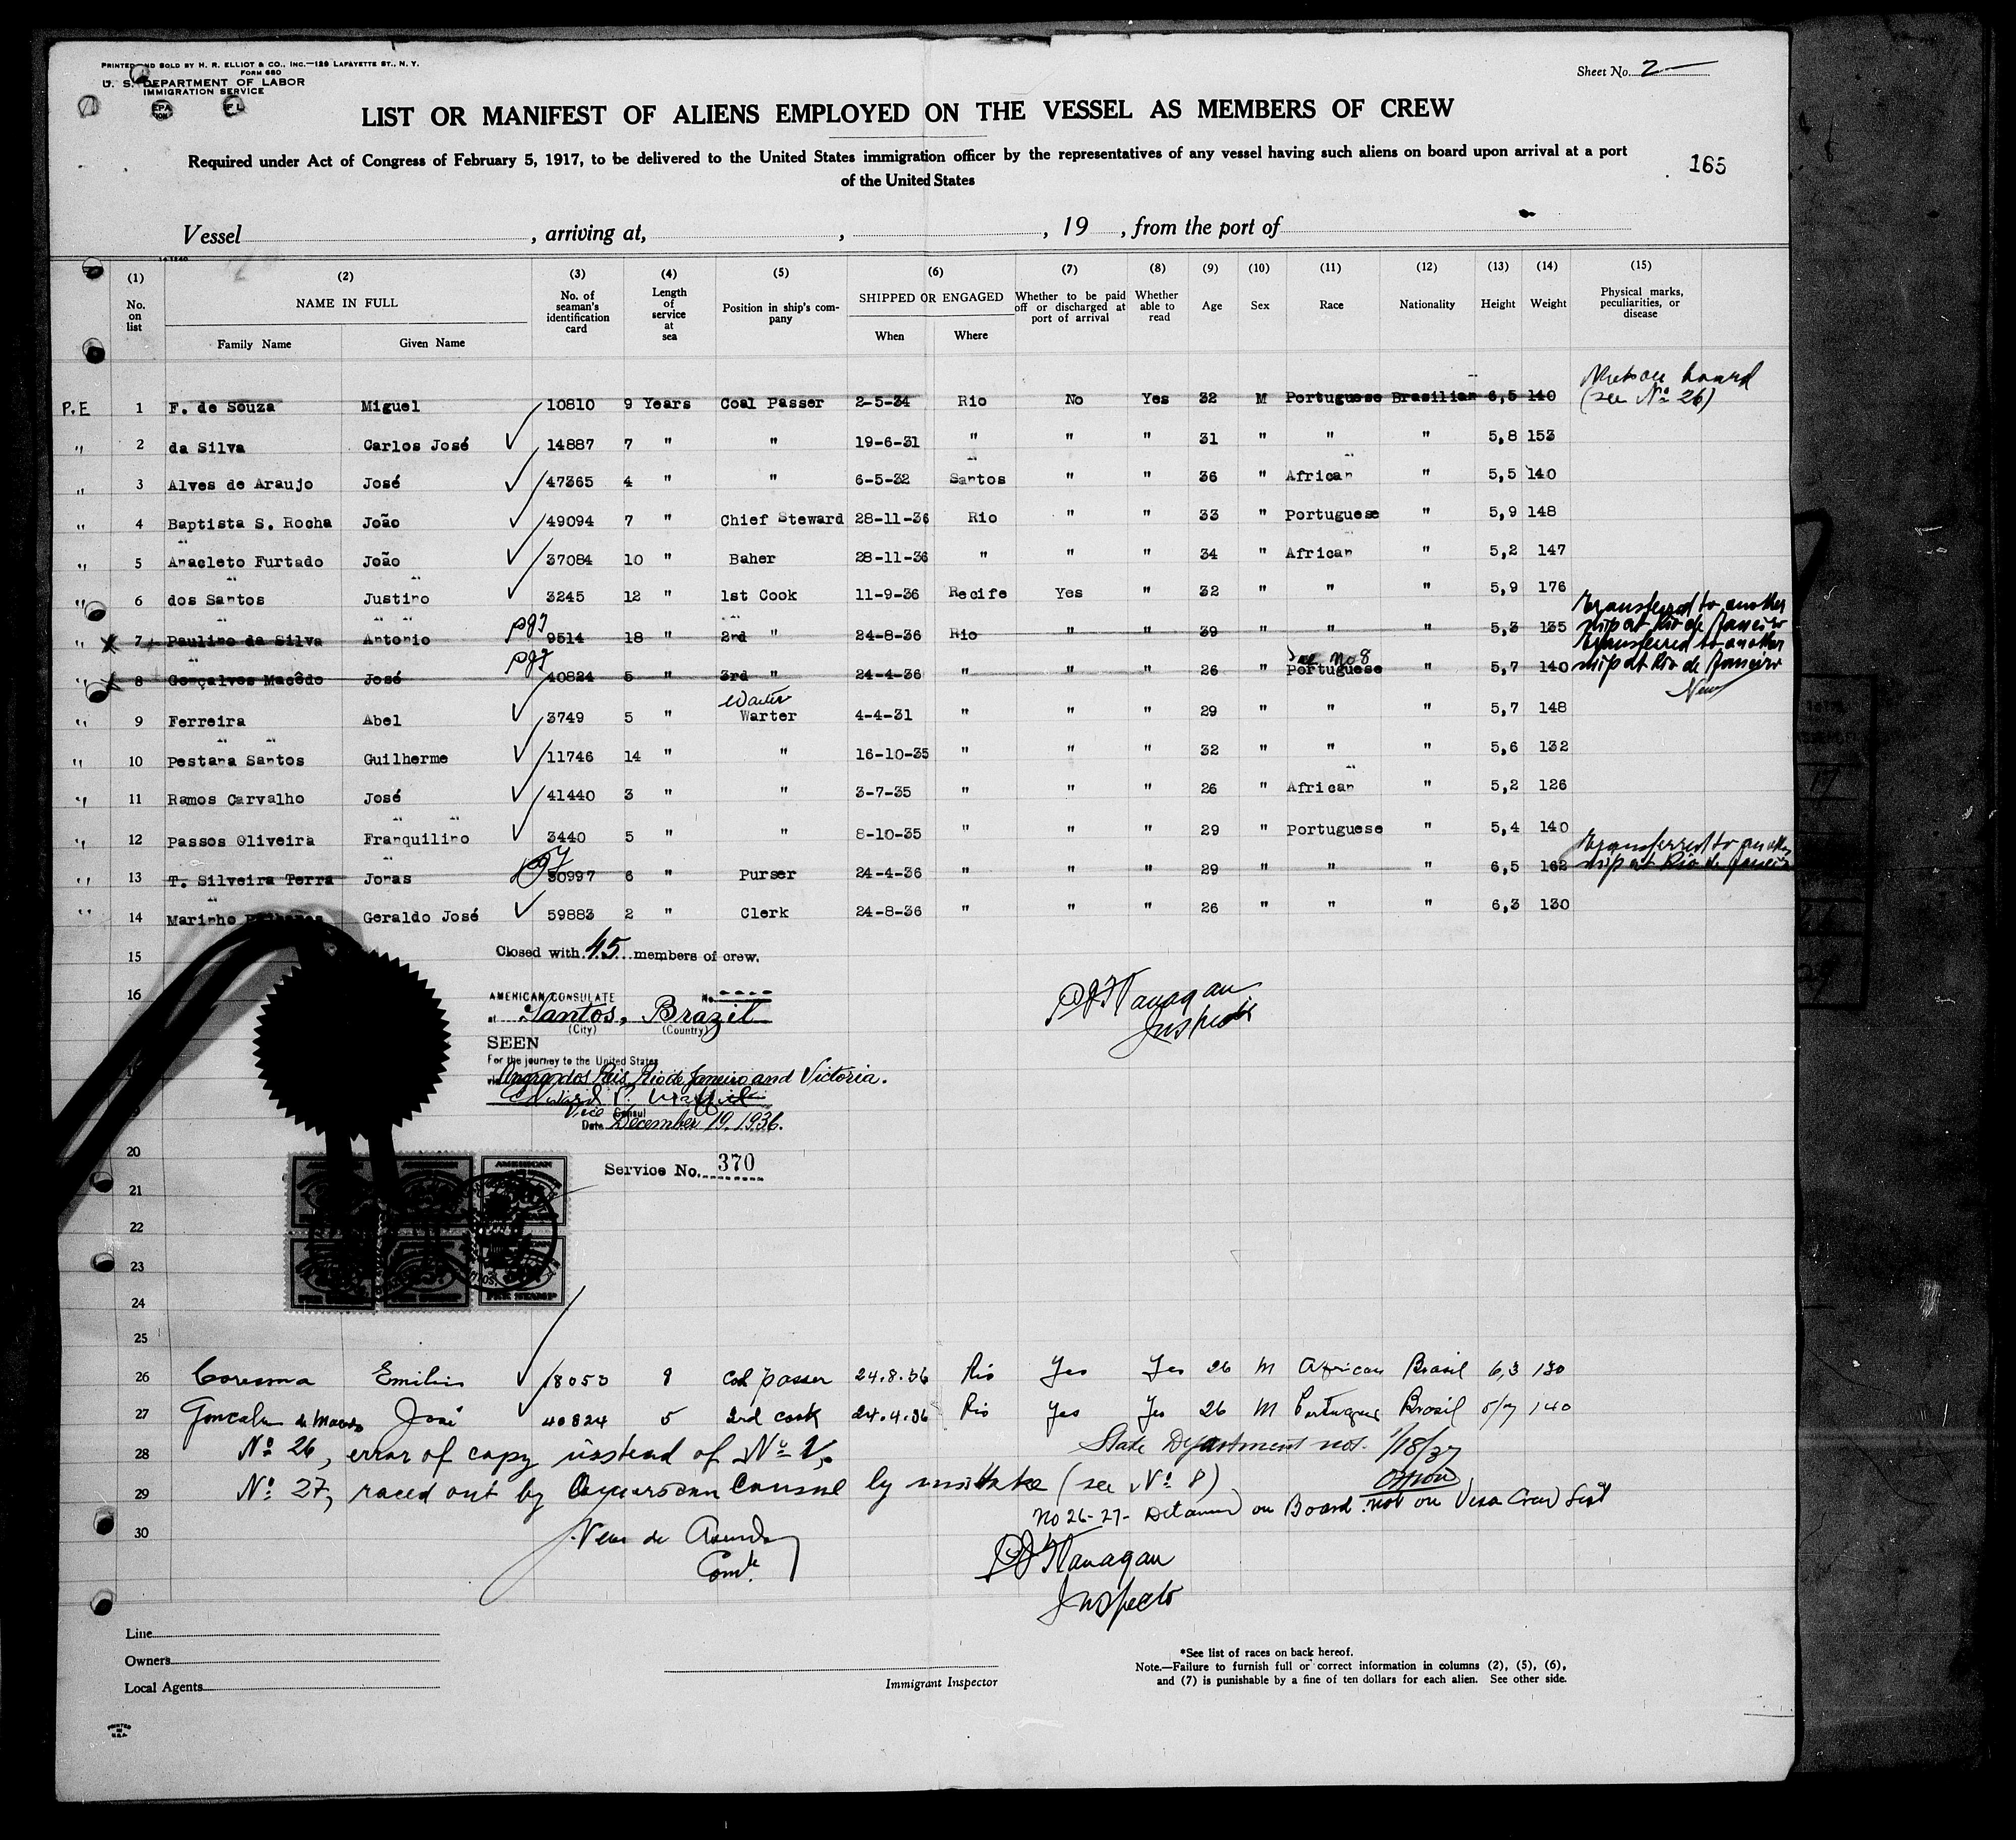 PRINTED AND SOLD BY H. R. ELLIOT & CO., INC.—129 LAFAYETTE ST., N. Y.
FORM 680
U. S. DEPARTMENT OF LABOR
IMMIGRATION SERVICE
Sheet No. 2
LIST OR MANIFEST OF ALIENS EMPLOYED ON THE VESSEL AS MEMBERS OF CREW
Required under Act of Congress of February 5, 1917, to be delivered to the United States immigration officer by the representatives of any vessel having such aliens on board upon arrival at a port
of the United States
165
Vessel , arriving at, , , 19 , from the port of
(1) (2) (3) (4) (5) (6) (7) (8) (9) (10) (11) (12) (13) (14) (15)
No. on list NAME IN FULL Family Name Given Name No. of seaman's identification card Length of service at sea Position in ship's company SHIPPED OR ENGAGED When Where Whether to be paid off or discharged at port of arrival Whether able to read Age Sex Race Nationality Height Weight Physical marks, peculiarities, or disease
P.E 1 F. de Souza Miguel 10810 9 Years Coal Passer 2-5-34 Rio No Yes 32 M Portuguese Brasilian 6,5 140 Not on board (see Nº 26)
" 2 da Silva Carlos José 14887 7 " " 19-6-31 " " " 31 " " " 5,8 153
" 3 Alves de Araujo José 47365 4 " " 6-5-32 Santos " " 36 " African " 5,5 140
" 4 Baptista S. Rocha João 49094 7 " Chief Steward 28-11-36 Rio " " 33 " Portuguese " 5,9 148
" 5 Anacleto Furtado João 37084 10 " Baher 28-11-36 " " " 34 " African " 5,2 147
" 6 dos Santos Justino 3245 12 " 1st Cook 11-9-36 Recife Yes " 32 " " " 5,9 176
" x 7 Paulino da Silva Antonio 9514 18 " 2rd " 24-8-36 Rio " " 39 " " " 5,3 135 Transferred to another ship at Rio de Janeiro
" x 8 Gonçalves Macêdo José 40824 5 " 3rd " 24-4-36 " " " 26 " Portuguese " 5,7 140 Transferred to another ship at Rio de Janeiro
See No 8
" 9 Ferreira Abel 3749 5 " Warter 4-4-31 " " " 29 " " " 5,7 148
Waiter
" 10 Pestana Santos Guilherme 11746 14 " " 16-10-35 " " " 32 " " " 5,6 132
" 11 Ramos Carvalho José 41440 3 " " 3-7-35 " " " 26 " African " 5,2 126
" 12 Passos Oliveira Franquilino 3440 5 " " 8-10-35 " " " 29 " Portuguese " 5,4 140
" 13 T. Silveira Terra Jonas 50997 6 " Purser 24-4-36 " " " 29 " " " 6,5 162 Transferred to another ship at Rio de Janeiro
" 14 Marinho Geraldo José 59883 2 " Clerk 24-8-36 " " " 26 " " " 6,3 130
15 Closed with 45 members of crew.
16
AMERICAN CONSULATE No.
at Santos, Brazil
(City) (Country)
PJ Flanagan
Inspector
SEEN
For the journey to the United States
via Angra dos Reis, Rio de Janeiro and Victoria.
Vice Consul
Date December 19, 1936.
20
Service No. 370
21
22
23
24
25
26 Coresma Emilio 18053 9 Coal passer 24.8.36 Rio Yes Yes 26 M African Brasil 6,3 130
27 Goncalves de Macedo José 40824 5 3rd cook 24.4.36 Rio Yes Yes 26 M Portuguese Brasil 5/7 140
28 Nº 26, error of copy instead of Nº 1.
State Department not. 1/18/37
29 Nº 27, raced out by American Consul by mistake (see Nº 8)
No 26-27- Detained on Board not on Visa Crew List
30
PJ Flanagan
Inspector
Line
Owners
Local Agents
Immigrant Inspector
*See list of races on back hereof.
Note.—Failure to furnish full or correct information in columns (2), (5), (6),
and (7) is punishable by a fine of ten dollars for each alien. See other side.
PRINTED IN U.S.A.